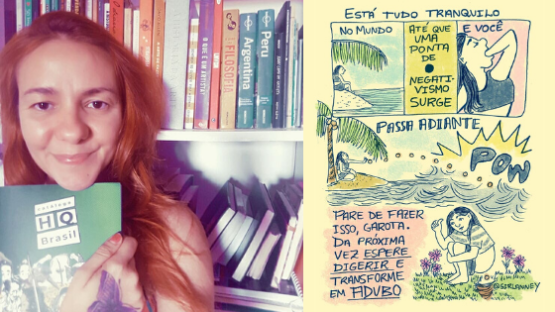 O QUE É UM ARTISTA?
FILOSOFIA
Argentina
Peru
catálogo
HQ
Brasil
ESTÁ TUDO TRANQUILO
NO MUNDO
ATÉ QUE
UMA
PONTA
DE
NEGATI-
VISMO
SURGE
E VOCÊ
PASSA ADIANTE
POW
PARE DE FAZER
ISSO, GAROTA.
DA PRÓXIMA
VEZ ESPERE
DIGERIR E
TRANSFORME
EM ADUBO